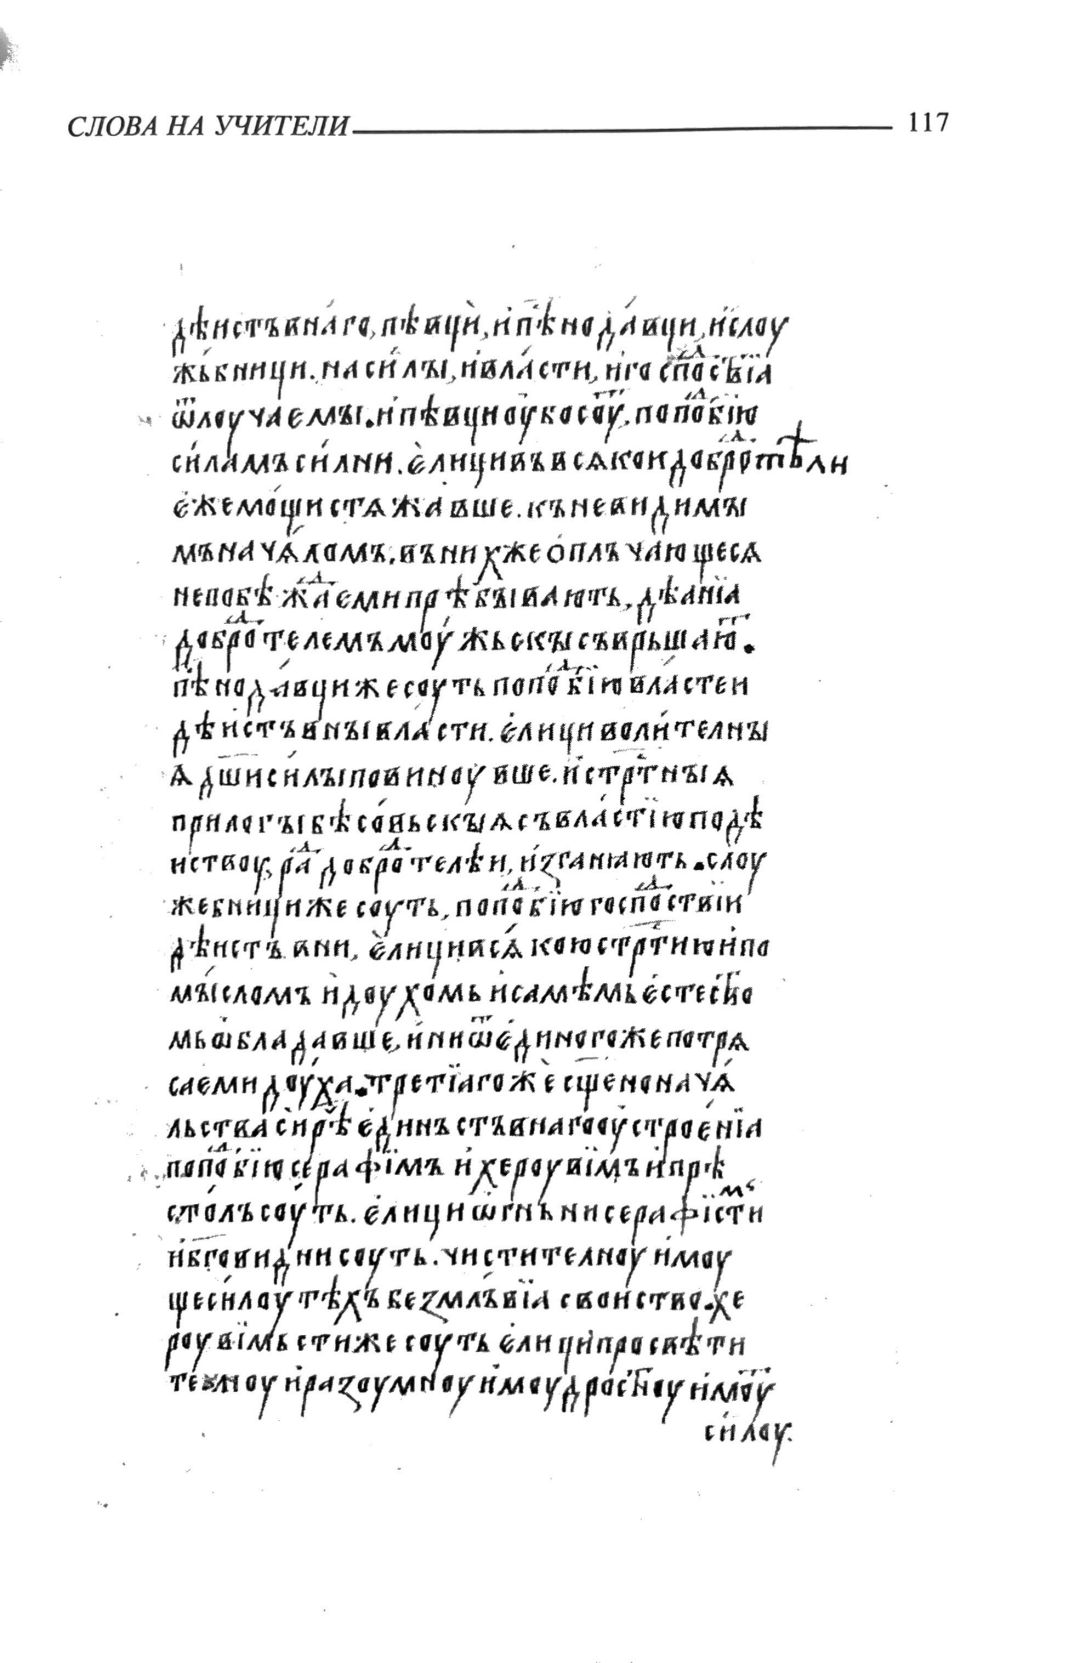 СЛОВА НА УЧИТЕЛИ 117
дѣистъвнаго, пѣвци, и пѣнодавци, и слоу
жьбници. на силы, и власти, и госпо͗дсъвїа
ѿлоучаемы. и пѣвци оубо соу͗т, по по͗дбїю
силамъ силни. елици въ всѧкои добро͗дтѣли
еже мощи стѧжавше. къ невидимы
мъ началомъ. въ нихже оплъчающесѧ
непобѣжа͗деми прѣбывають, дѣанїа
добро͗дтелемъ моужьскы съврьшаю͗т.
пѣнодавци же соуть по по͗дбїю властеи
дѣистъвны власти. елици волителны
ѧ дш҃и силы повиноувше. и стр҃тныѧ
прилогы бѣсовьскыѧ съ властїю по дѣ
иствоу, ра͗д добро͗дтелѣи, изганіають. слоу
жебници же соуть, по по͗дбїю госпо͗дствїи
дѣистъвни, елици всѧкою стр҃тию и по
мыслом и доухомь и самѣмь естес͗тво
мь обладавше, и ни ѿ единого же потрѧ
саеми доуха. третїаго же сщ҃еноначѧ
льства сирѣ͗ч единъствнаго оустроенїа
по по͗дбїю серафїмъ и хероувїмъ и прѣ
столъ соуть. елици огньни серафїмсти
и бг҃овидни соуть. чистителноу имоу
ще силоу тѣхъ безмлъвїа своиство. хе
роувїмьсти же соуть елици просвѣти
телноу и разоумноу и моудрос͗тноу имоу͗щ
силоу.